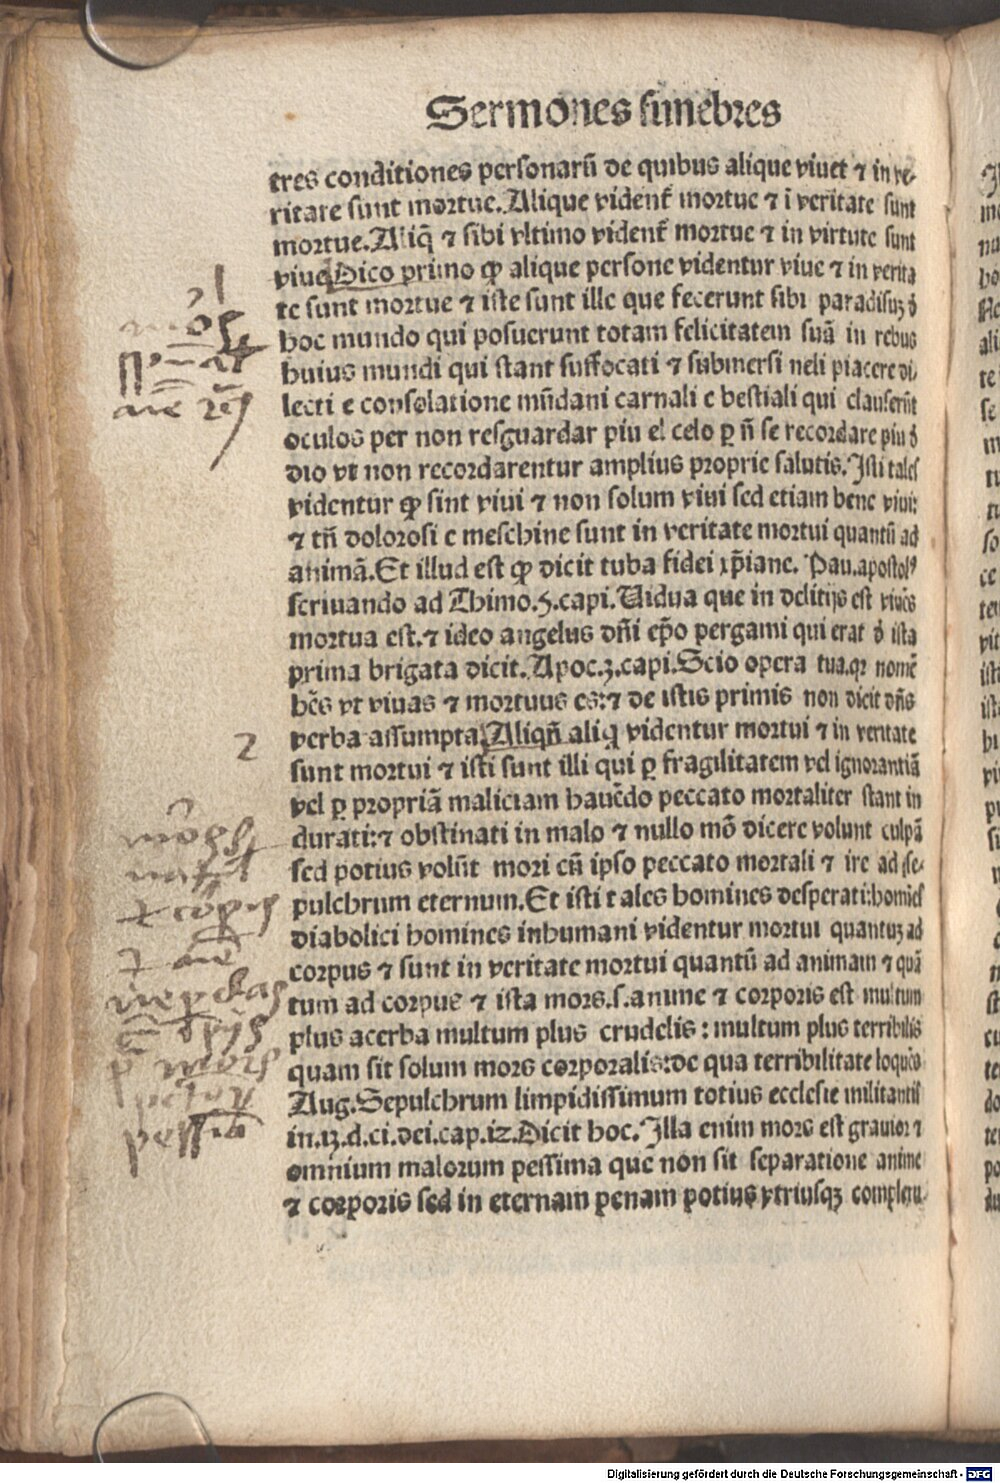 Sermones funebres
tres conditiones personarũ de quibus alique viuẽt ⁊ in ve⸗
ritate sunt mortue. Alique vident̃ mortue ⁊ ĩ veritate sunt
mortue. Aliq̃ ⁊ sibi vltimo vident̃ mortue ⁊ in virtute sunt
viue Dico primo ꝙ alique persone videntur viue ⁊ in verita
te sunt mortue ⁊ iste sunt ille que fecerunt sibi paradisuʒ ð
hoc mundo qui posuerunt totam felicitatem suã in rebus
huius mundi qui stant suffocati ⁊ submersi neli piacere di⸗
lecti e consolatione mũdani carnali e bestiali qui clauserũt
oculos per non resguardar piu el celo ꝑ ñ se recordare piu ð
dio vt non recordarentur amplius proprie salutis. Isti tales
videntur ꝙ sint viui ⁊ non solum viui sed etiam bene viui:
⁊ tñ dolorosi e meschine sunt in veritate mortui quantũ ad
animã. Et illud est ꝙ dicit tuba fidei xp̃iane. Pau. apostolꝰ
scriuando ad Thimo. 5. capi. Uidua que in delitijs est viuẽs
mortua est. ⁊ ideo angelus dñi ep̃o pergami qui erat ð ista
prima brigata dicit. Apoc. 3. capi. Scio opera tua. qꝛ nomẽ
hẽs vt viuas ⁊ mortuus es: ⁊ de istis primis non dicit dñs
verba assumpta. Aliqñ aliq̃ videntur mortui ⁊ in veritate
sunt mortui ⁊ isti sunt illi qui ꝑ fragilitatem vel ignorantiã
vel ꝑ propriã maliciam hauẽdo peccato mortaliter stant in
durati: ⁊ obstinati in malo ⁊ nullo mõ dicere volunt culpã
sed potius volũt mori cũ ipso peccato mortali ⁊ ire ad se⸗
pulchrum eternum. Et isti tales homines desperati: homĩes
diabolici homines inhumani videntur mortui quantuʒ ad
corpus ⁊ sunt in veritate mortui quantũ ad animam ⁊ quã
tum ad corpus ⁊ ista mors. s. anime ⁊ corporis est multum
plus acerba multum plus crudelis: multum plus terribilis
quam sit solum mors corporalis: de qua terribilitate loquẽs
Aug. Sepulchrum limpidissimum totius ecclesie militantis
in. 13. d. ci. dei. cap. 12. Dicit hoc. Illa enim mors est grauior ⁊
omnium malorum pessima que non sit separatione anime
⁊ corporis sed in eternam penam potius vtriusqʒ complexu
1
2
Digitalisierung gefördert durch die Deutsche Forschungsgemeinschaft - DFG